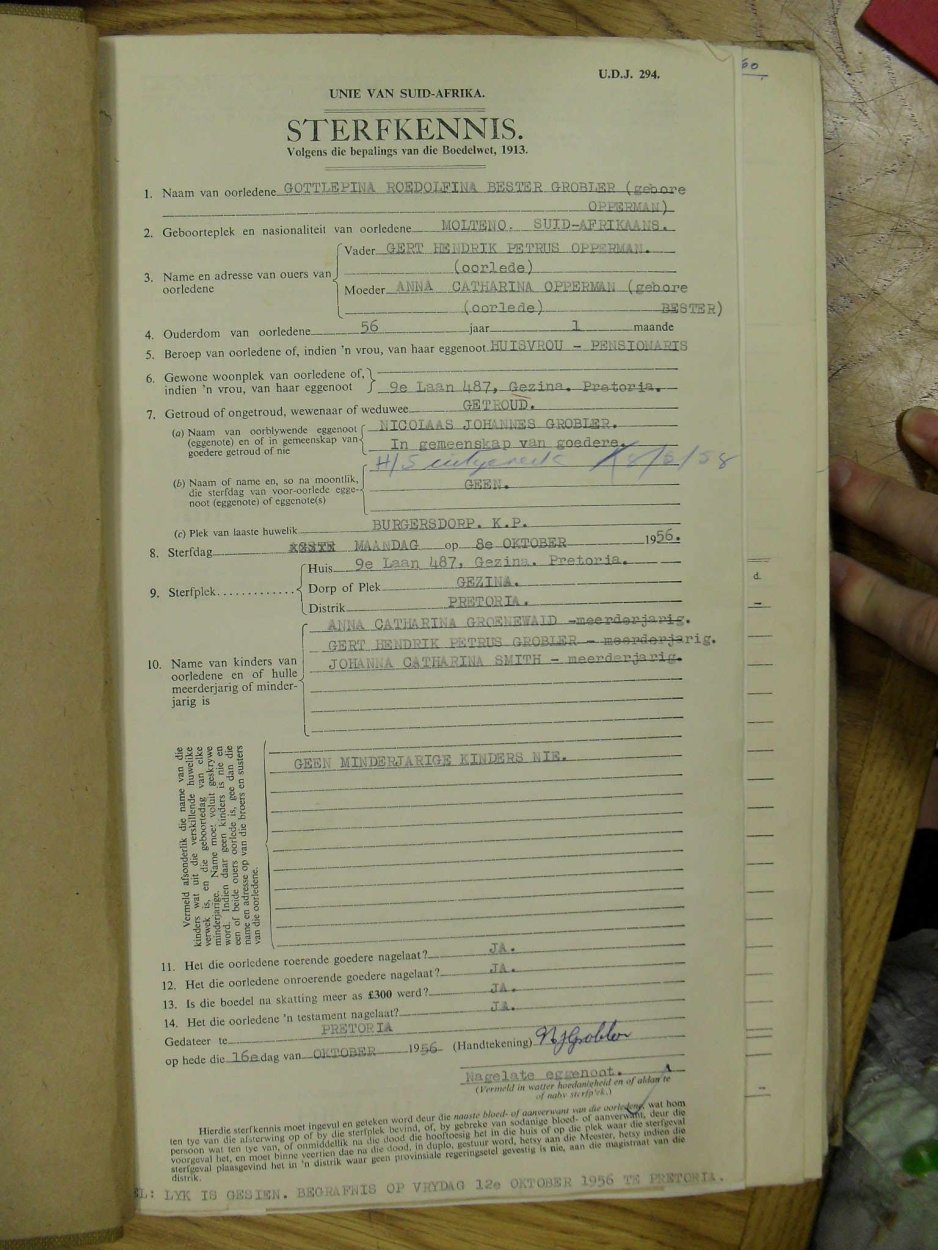 60
U.D.J. 294.
UNIE VAN SUID-AFRIKA.
STERFKENNIS.
Volgens die bepalings van die Boedelwet, 1913.
1. Naam van oorledene GOTTLEPINA ROEDOLFINA BESTER GROBLER (gebore
OPPERMAN)
2. Geboorteplek en nasionaliteit van oorledene MOLTENO. SUID-AFRIKAANS.
3. Name en adresse van ouers van oorledene
Vader GERT HENDRIK PETRUS OPPERMAN.
(oorlede)
Moeder ANNA CATHARINA OPPERMAN (gebore
(oorlede) BESTER)
4. Ouderdom van oorledene 56 jaar 1 maande
5. Beroep van oorledene of, indien 'n vrou, van haar eggenoot HUISVROU – PENSIONARIS
6. Gewone woonplek van oorledene of,
indien 'n vrou, van haar eggenoot 9e Laan 487, Gezina. Pretoria.
7. Getroud of ongetroud, wewenaar of weduwee GETROUD.
(a) Naam van oorblywende eggenoot NICOLAAS JOHANNES GROBLER.
(eggenote) en of in gemeenskap van
goedere getroud of nie In gemeenskap van goedere.
H/S uitgereik 18/6/58
(b) Naam of name en, so na moontlik,
die sterfdag van voor-oorlede egge- GEEN.
noot (eggenote) of eggenote(s)
(c) Plek van laaste huwelik BURGERSDORP. K.P.
8. Sterfdag MAANDAG op 8e OKTOBER 1956.
9. Sterfplek
Huis 9e Laan 487, Gezina. Pretoria.
Dorp of Plek GEZINA.
Distrik PRETORIA.
ANNA CATHARINA GROENEWALD -meerderjarig.
GERT HENDRIK PETRUS GROBLER – meerderjarig.
10. Name van kinders van JOHANNA CATHARINA SMITH – meerderjarig.
oorledene en of hulle
meerderjarig of minder-
jarig is
Vermeld afsonderlik die name van die
kinders wat uit die verskillende huwelike
verwek is, en die geboortedag van elke
minderjarige. Name moet voluit geskrywe
word. Indien daar geen kinders is nie en
een of beide ouers oorlede is, gee dan die
name en adresse op van die broers en susters
van die oorledene.
GEEN MINDERJARIGE KINDERS NIE.
11. Het die oorledene roerende goedere nagelaat? JA.
12. Het die oorledene onroerende goedere nagelaat? JA.
13. Is die boedel na skatting meer as £300 werd? JA.
14. Het die oorledene 'n testament nagelaat? JA.
Gedateer te PRETORIA
op hede die 16e dag van OKTOBER 1956 (Handtekening) NJGrobler
Nagelate eggenoot.
(Vermeld in watter hoedanigheid en of aldan te
of naby sterfplek.)
Hierdie sterfkennis moet ingevul en geteken word deur die naaste bloed- of aanverwant van die oorledene, wat hom
ten tye van die afsterwing op of by die sterfplek bevind, of, by gebreke van sodanige bloed- of aanverwant, deur die
persoon wat ten tye van, of onmiddellik na die dood die hooftoesig het in die huis of op die plek waar die sterfgeval
voorgeval het, en moet binne veertien dae na die dood, in duplo, gestuur word, hetsy aan die Meester, hetsy indien die
sterfgeval plaasgevind het in 'n distrik waar geen provinsiale regeringsetel gevestig is nie, aan die magistraat van die
distrik.
EL: LYK IS GESIEN. BEGRAFNIS OP VRYDAG 12e OKTOBER 1956 TE PRETORIA.
d.